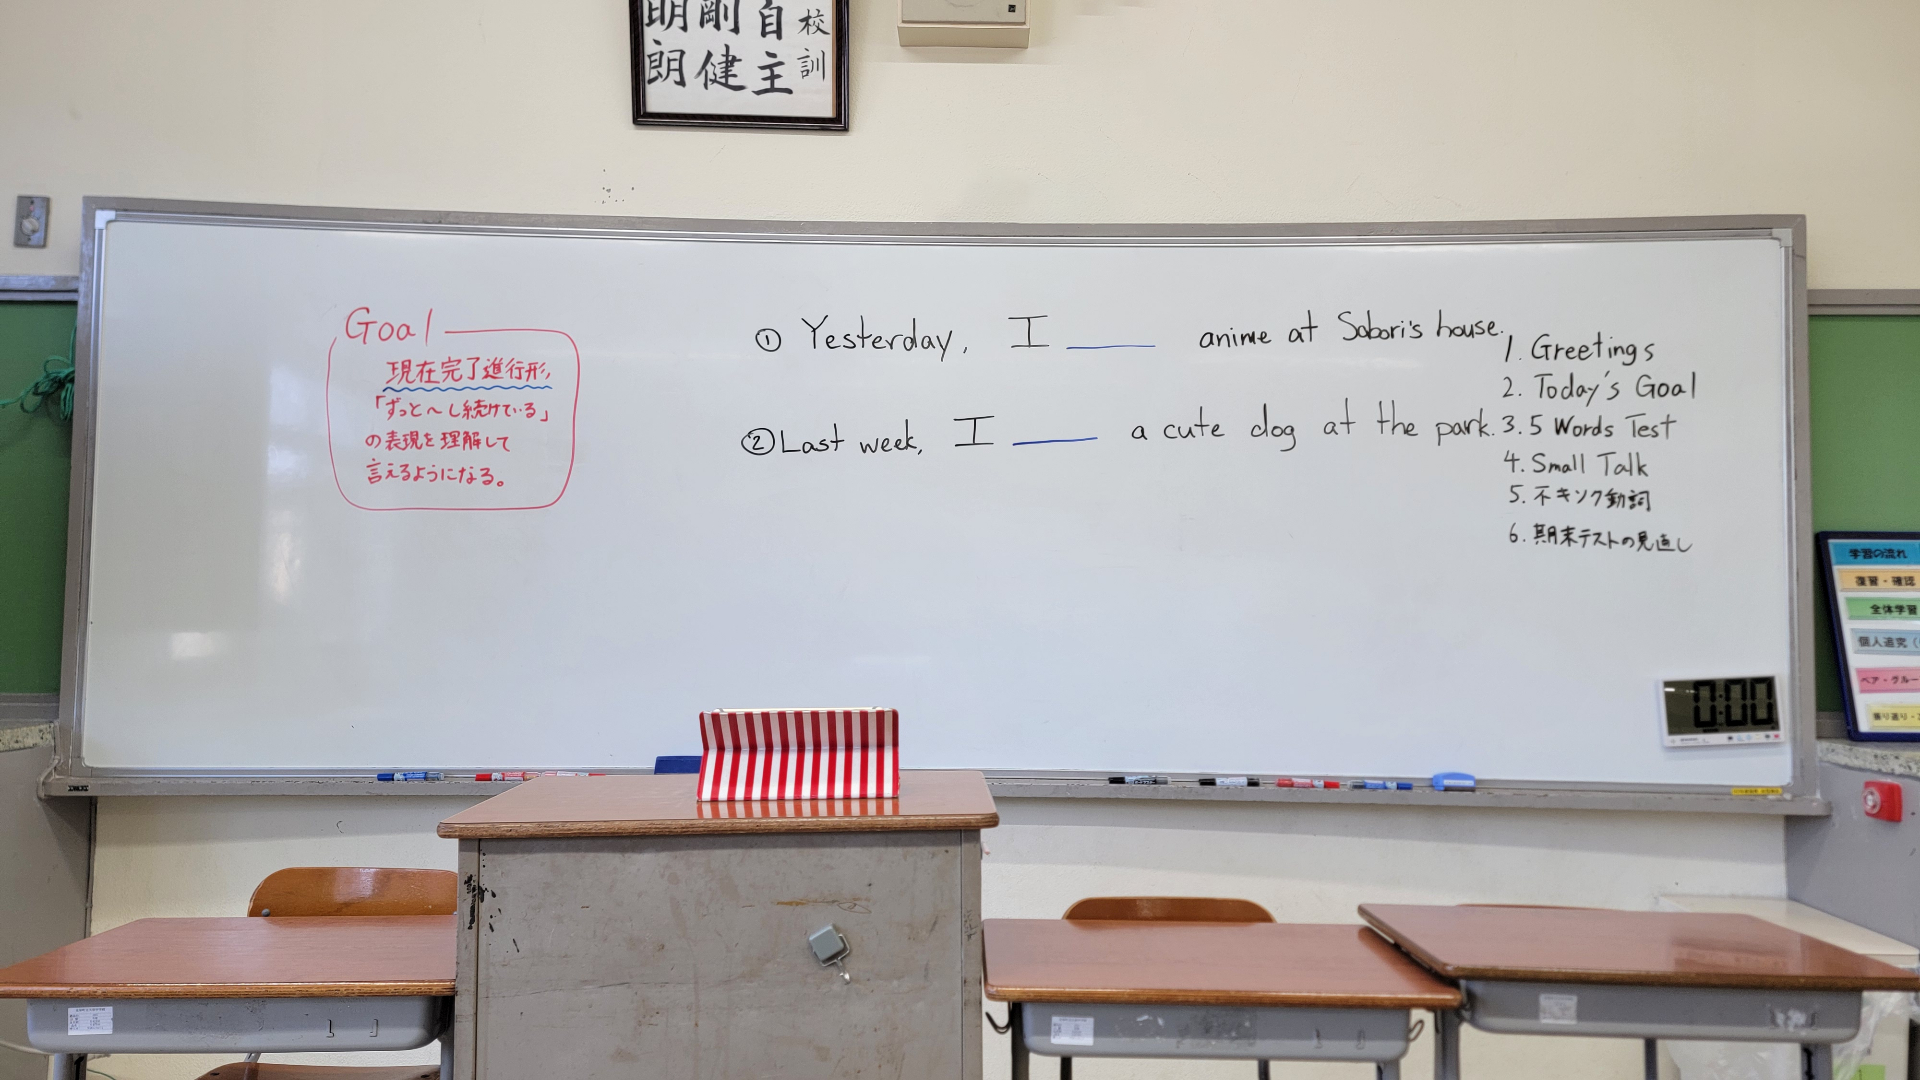 校訓
自主
剛健
明朗
Goal
現在完了進行形,
「ずっと〜し続けている」
の表現を理解して
言えるようになる。
① Yesterday, I ____ anime at Sabori's house.
② Last week, I ____ a cute dog at the park.
1. Greetings
2. Today's Goal
3. 5 Words Test
4. Small Talk
5. 不キソク動詞
6. 期末テストの見直し
0:00
0:00
学習の流れ
復習・確認
全体学習
個人追究(
ペア・グルー
振り返り・